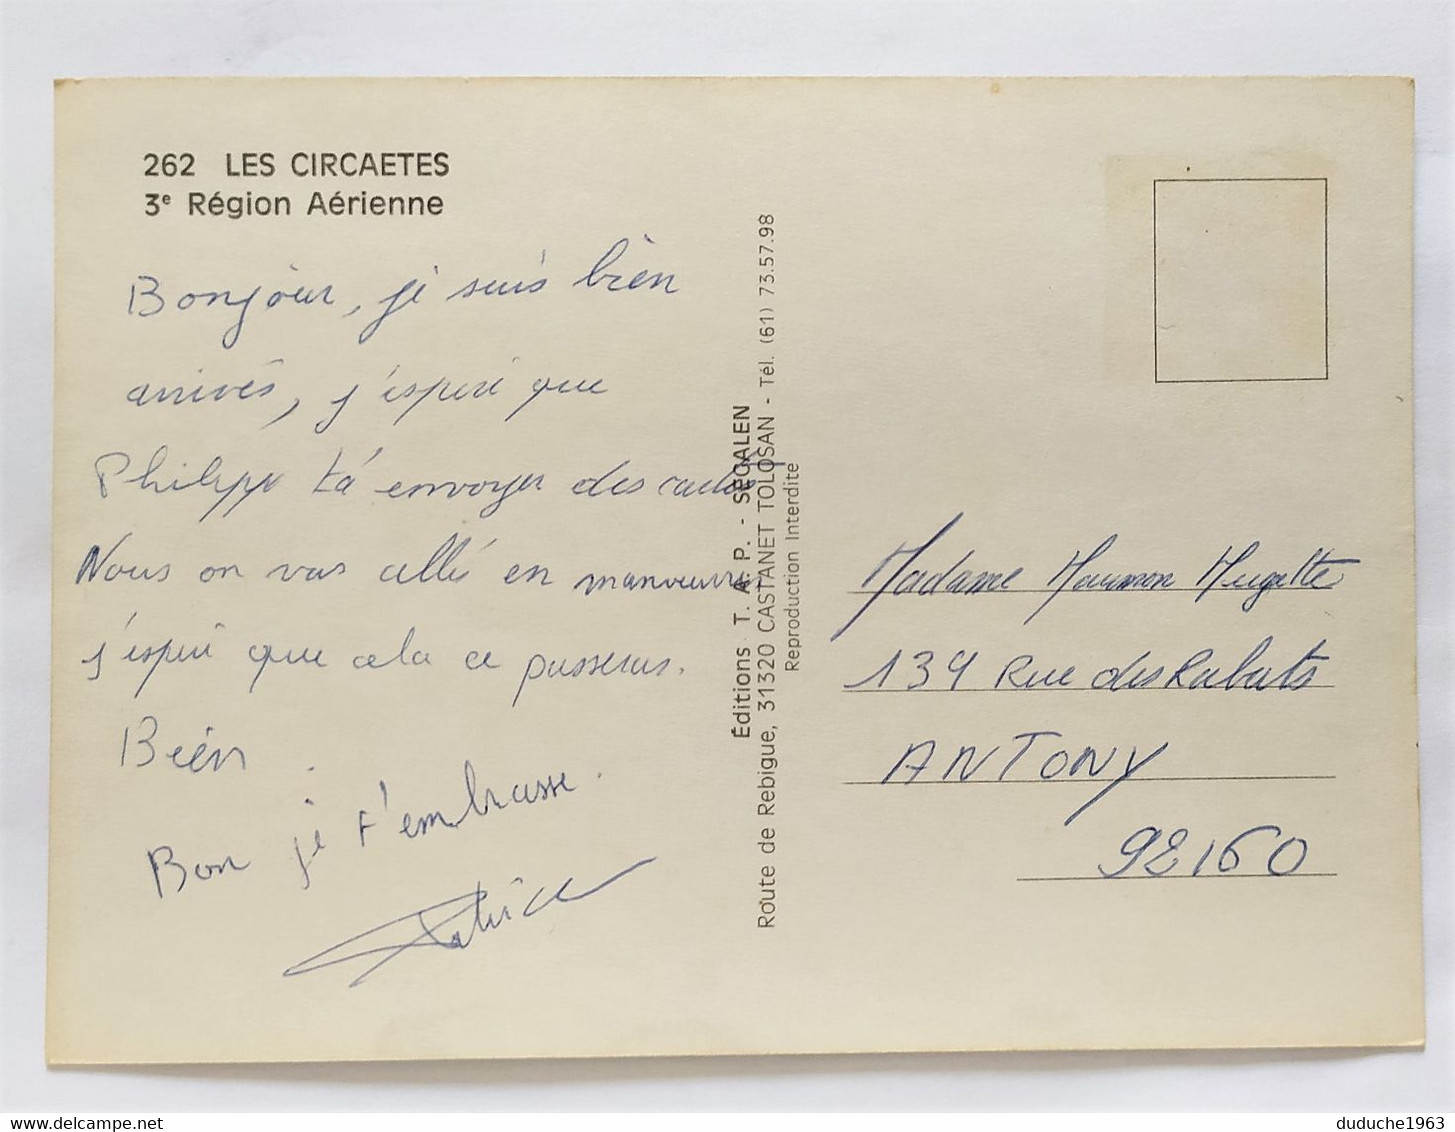 262 LES CIRCAETES
3e Région Aérienne
Bonjour, je suis bien
arrivés, j'esperé que
Philippe t'á envoyer des cartes
Nous on vas allés en manoeuvre
j'esperé que cela ce passeras.
Bien.
Bon je t'embrasse.
Patrice
Éditions T. A. P. - SEGALEN
Route de Rebigue, 31320 CASTANET TOLOSAN - Tél. (61) 73.57.98
Reproduction Interdite
Madame Huguette
139 Rue des Rabats
ANTONY
92160
delcampe.net
duduche1963